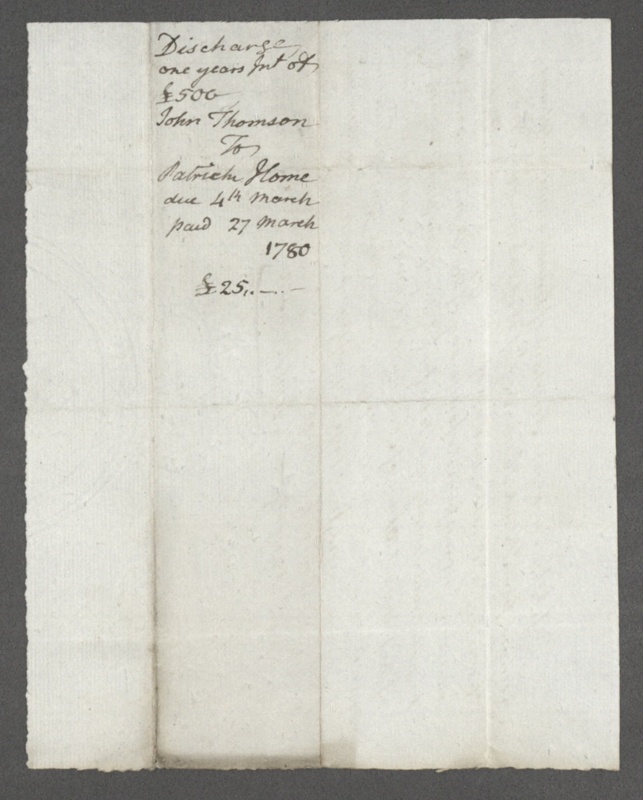 Discharge
one years Int of
£500
John Thomson
To
Patrick Home
due 4th March
paid 27 March
1780
£25,,—.—